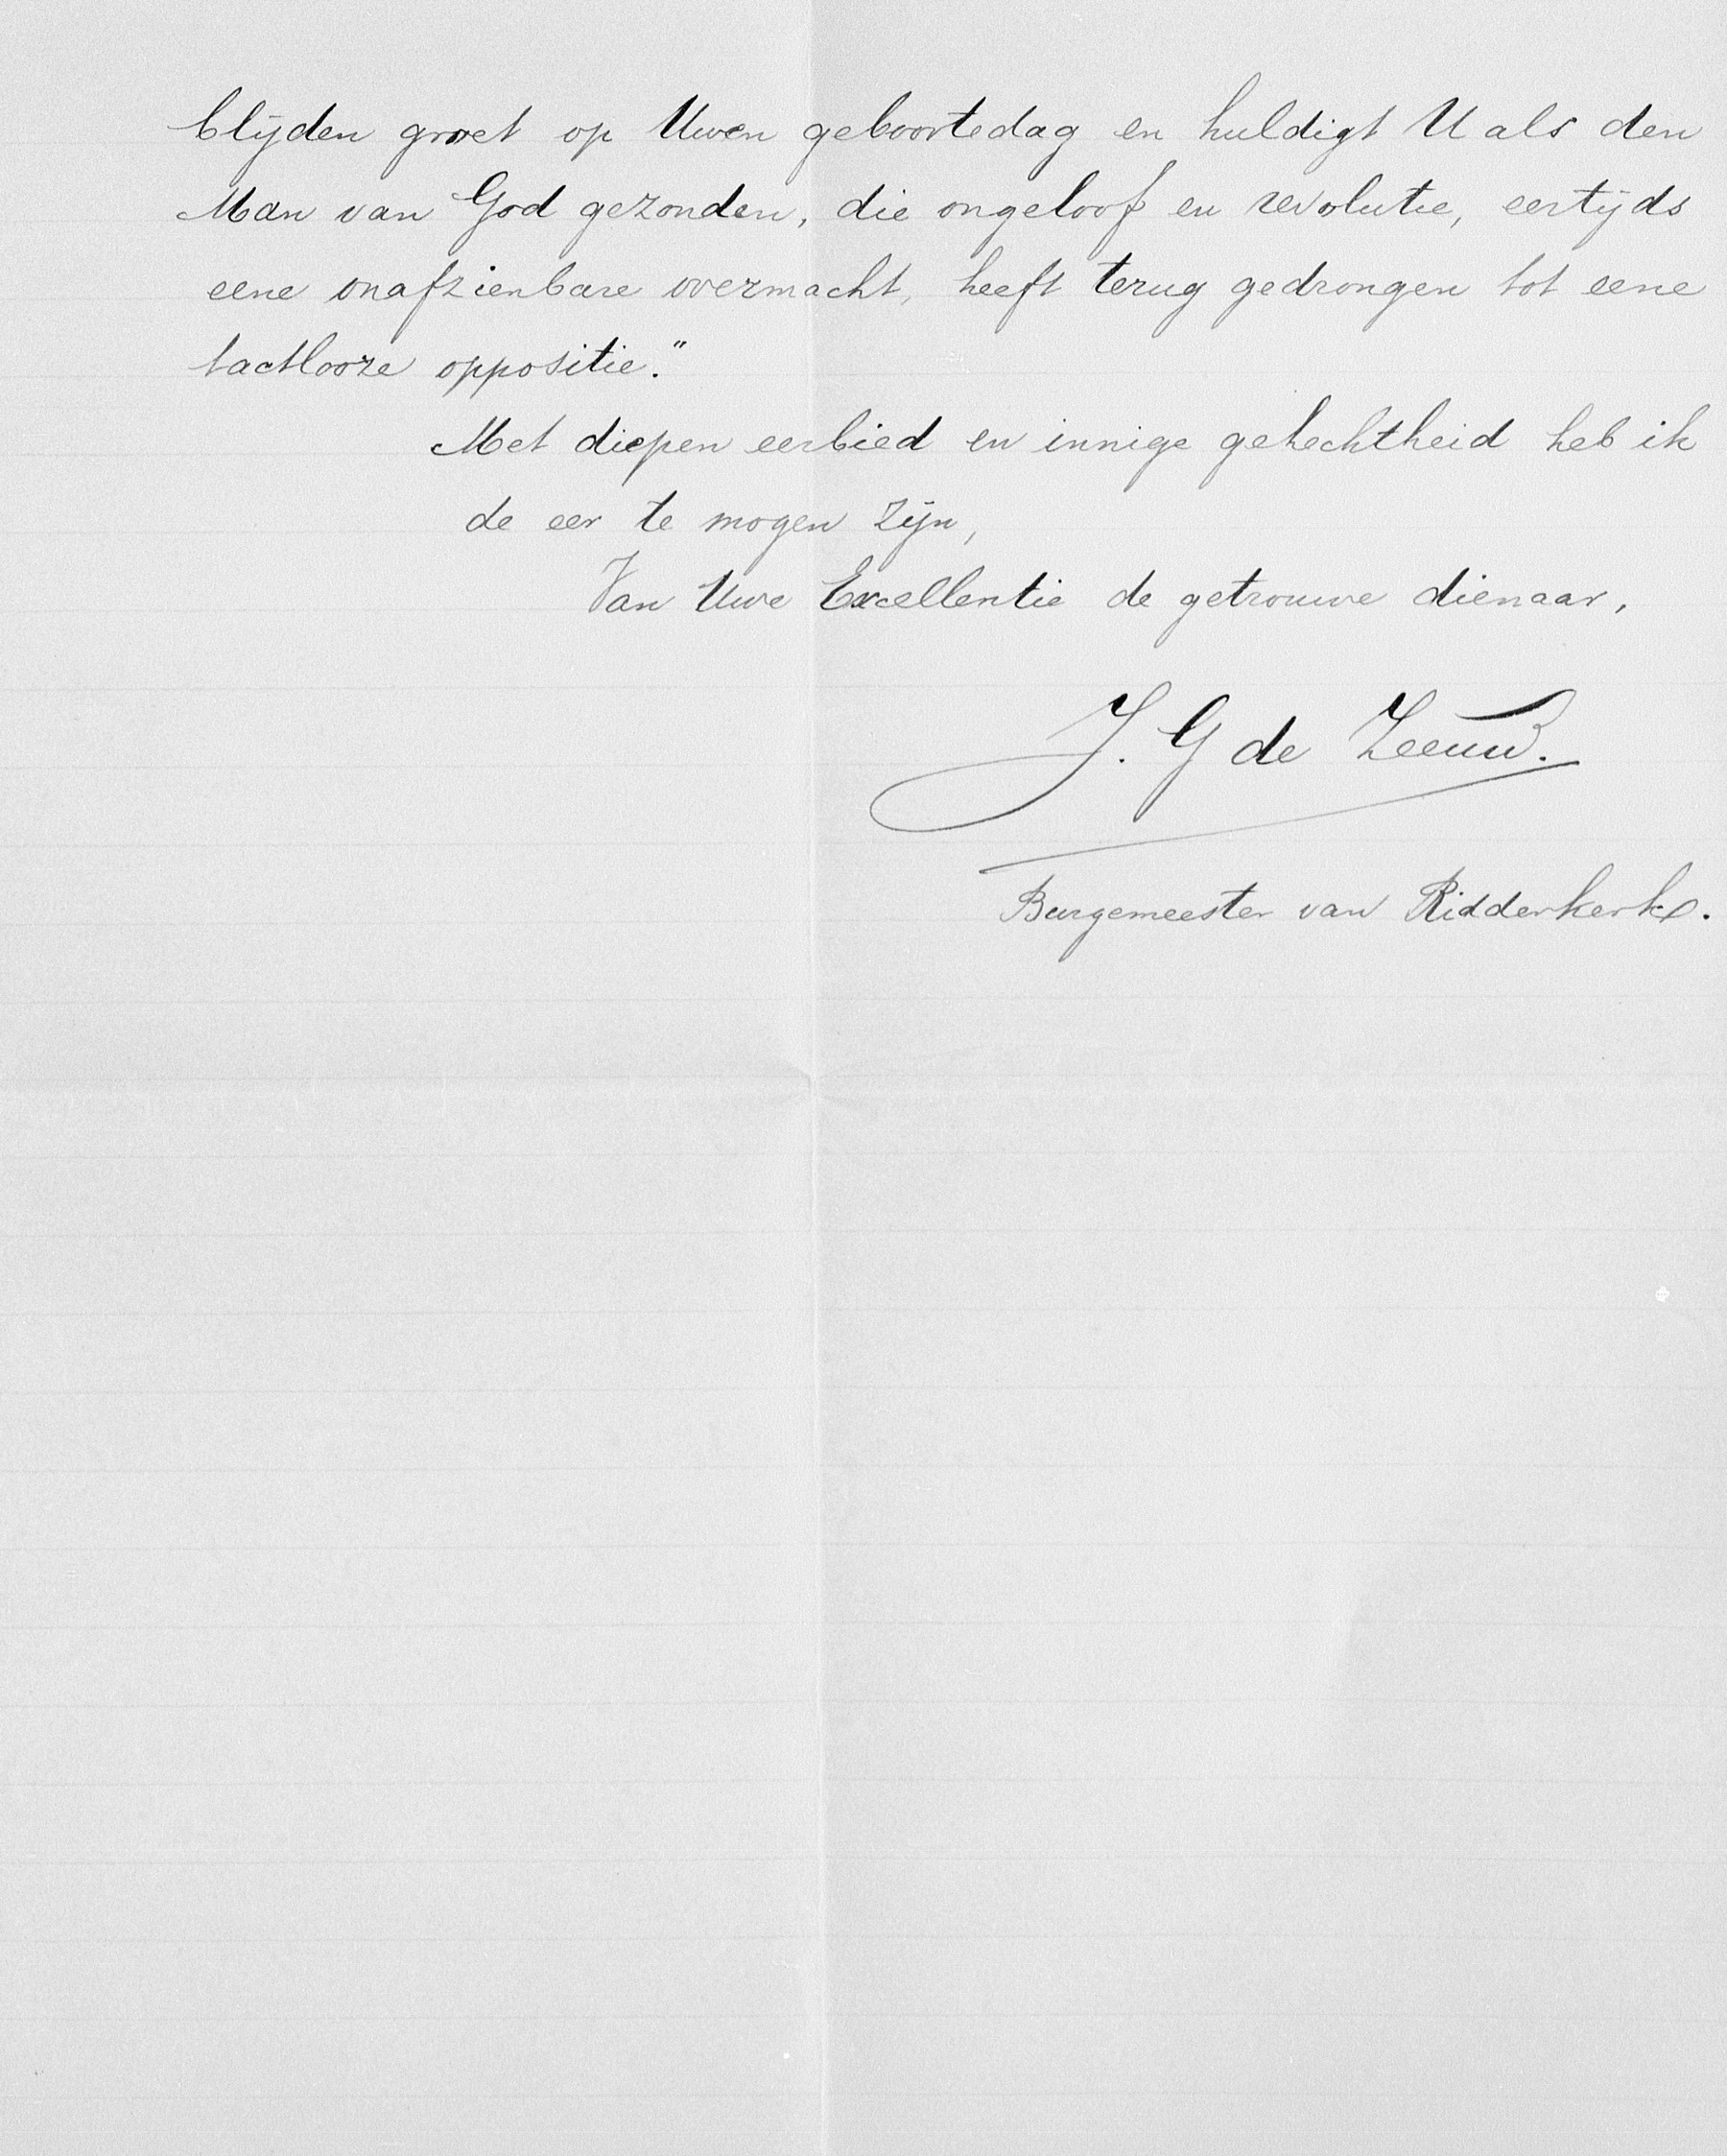 blijden groet op Uwen geboortedag en huldigt U als den
Man van God gezonden, die ongeloof en revolutie, eertijds
eene onafzienbare overmacht, heeft terug gedrongen tot eene
tactlooze oppositie."
Met diepen eerbied en innige gehechtheid heb ik
de eer te mogen zijn,
Van Uwe Excellentie de getrouwe dienaar,
J. G de Zeeuw.
Burgemeester van Ridderkerk.